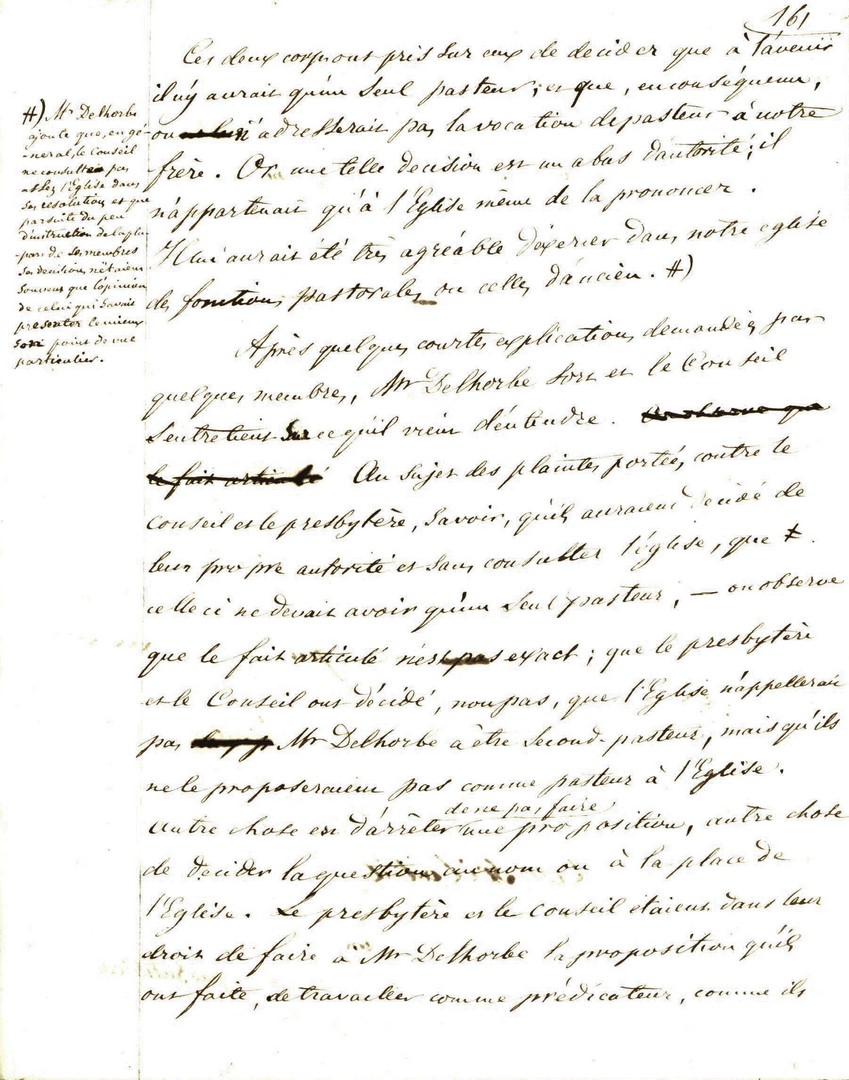 161
Ces deux corps ont pris sur eux de decider que à l'avenir
il n'y aurait qu'un seul pasteur; et que, en conséquence,
on n'adresserait pas la vocation de pasteur à notre
frère. Or une telle decision est un abus d'autorité; il
n'appartenait qu'à l'Eglise même de la prononcer.
Il lui aurait été très agréable d'exercer dans notre eglise
des fonctions pastorales ou celles d'ancien. #)
#) Mr Delhorbe
ajoute que, en gé-
néral, le Conseil
ne consulte pas
assez l'Eglise dans
ses résolutions et que
par suite du peu
d'instruction de la plu-
part de ses membres
ses decisions n'étaient
souvent que l'opinion
de celui qui savait
presenter le mieux
son point de vue
particulier.
Après quelques courtes explications demandées par
quelques membres, Mr Delhorbe sort et le Conseil
s'entretient sur ce qu'il vient d'entendre. On observe que
le fait articulé Au sujet des plaintes portées contre le
Conseil et le presbytère, savoir, qu'ils auraient decidé de
leur propre autorité et sans consulter l'église, que
celle ci ne devait avoir qu'un seul pasteur, — on observe
que le fait articulé n'est pas exact; que le presbytère
et le Conseil ont décidé, non pas, que l'Eglise n'appellerait
pas Mr Delhorbe à être second-pasteur, mais qu'ils
ne le proposeraient pas comme pasteur à l'Eglise.
Autre chose est d'arrêter de ne pas faire une proposition, autre chose
de decider la question au nom ou à la place de
l'Eglise. Le presbytère et le Conseil étaient dans leur
droit de faire à Mr Delhorbe la proposition qu'ils
ont faite, de travailler comme prédicateur, comme ils